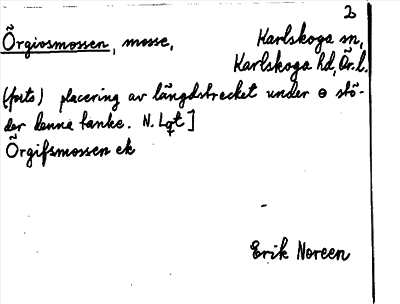 2
Örgivsmossen, mosse, Karlskoga sn,
Karlskoga hd, Ör.l.
(forts) placering av längdstrecket under ө stö-
der denna tanke. N. Lqt]
Örgifsmossen ek
Erik Noreen